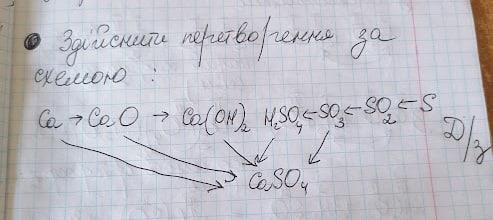 Здійснити перетворення за
схемою :
Ca → CaO → Ca(OH)₂ H₂SO₄ ← SO₃ ← SO₂ ← S
Д/з
CaSO₄